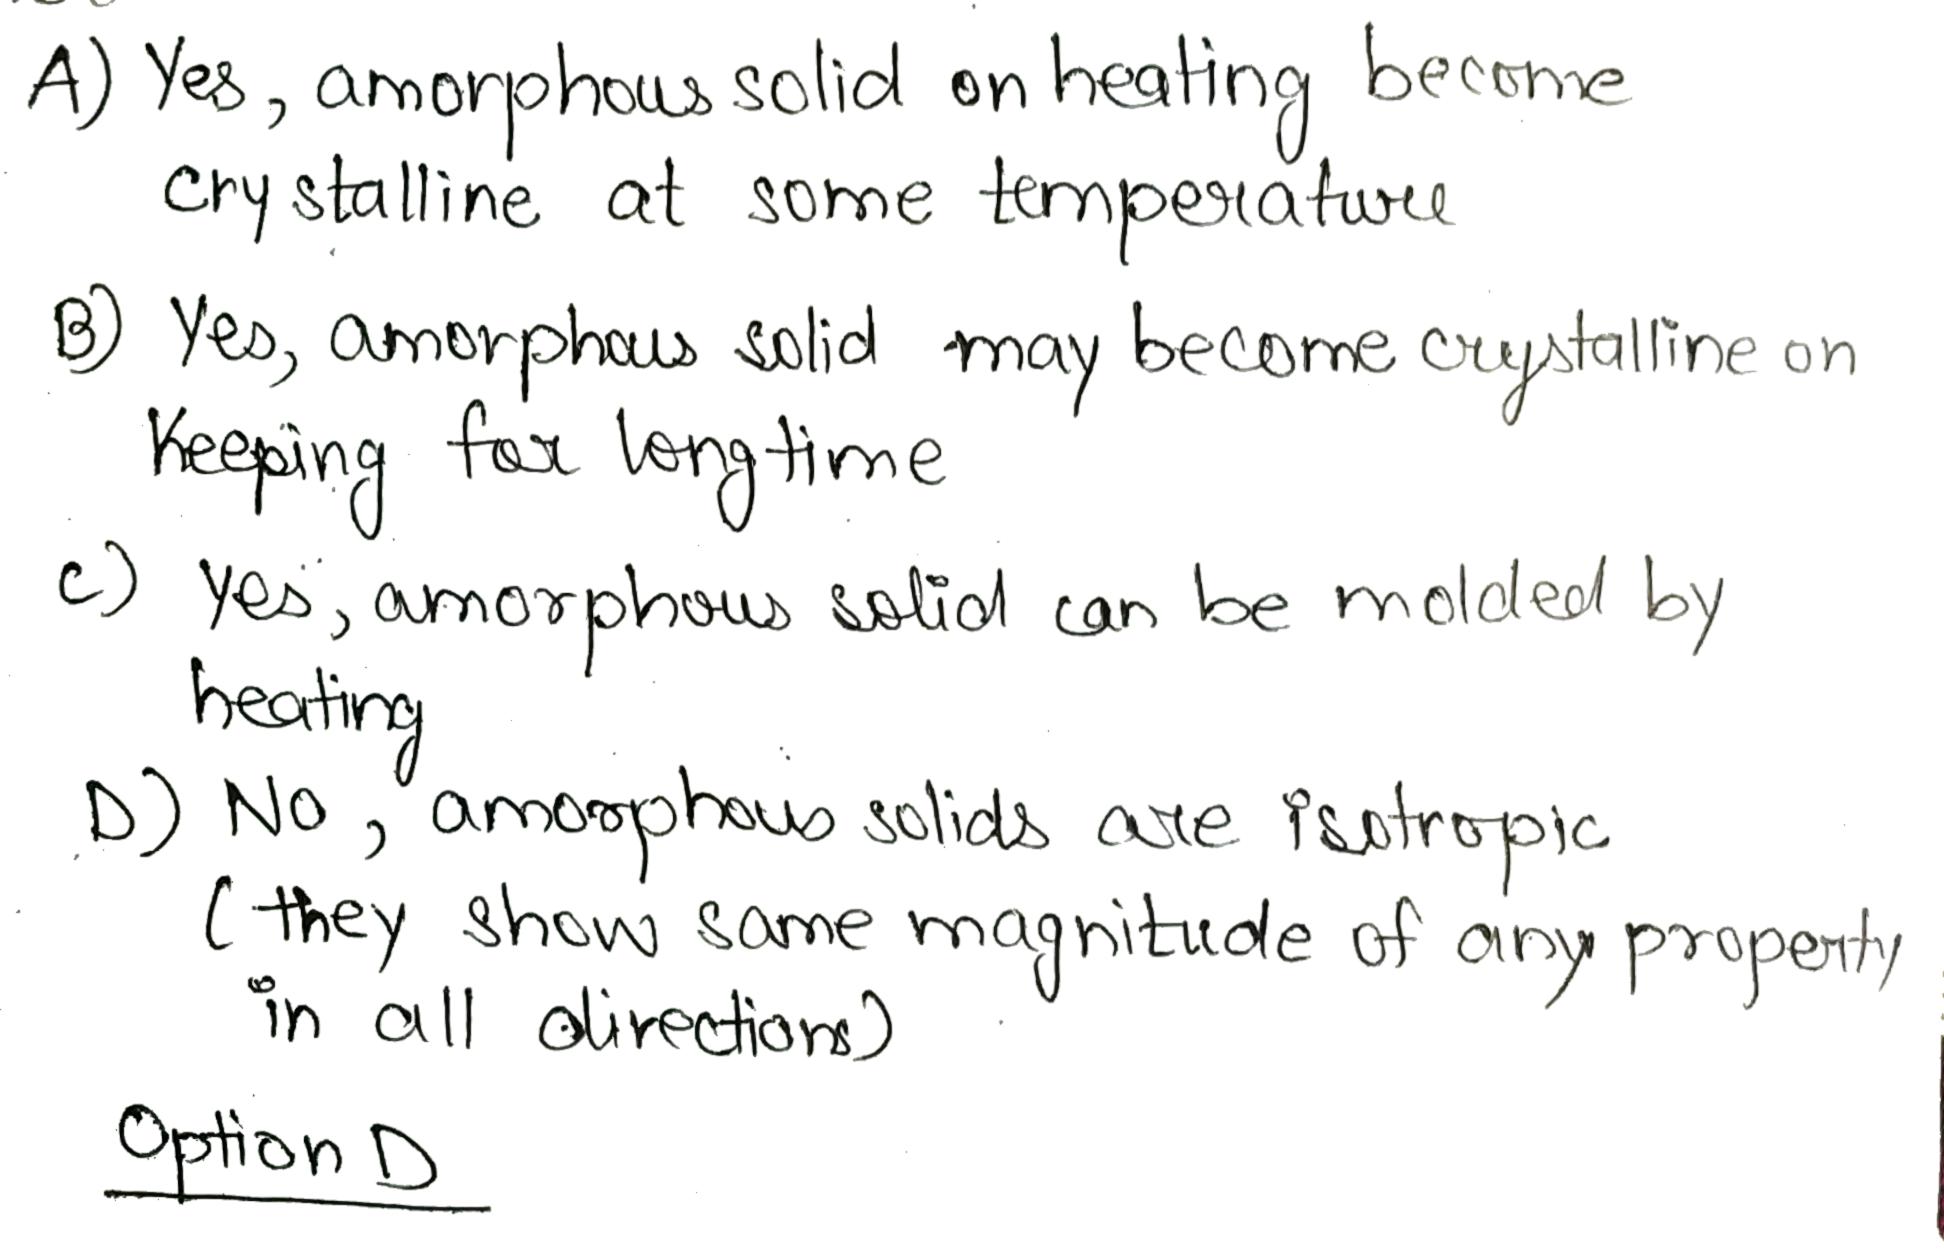 A) Yes, amorphous solid on heating become
crystalline at some temperature
B) Yes, amorphous solid may become crystalline on
Keeping for long time
C) Yes, amorphous solid can be molded by
heating
D) No, amorphous solids are isotropic
(they show same magnitude of any property
in all directions)
Option D